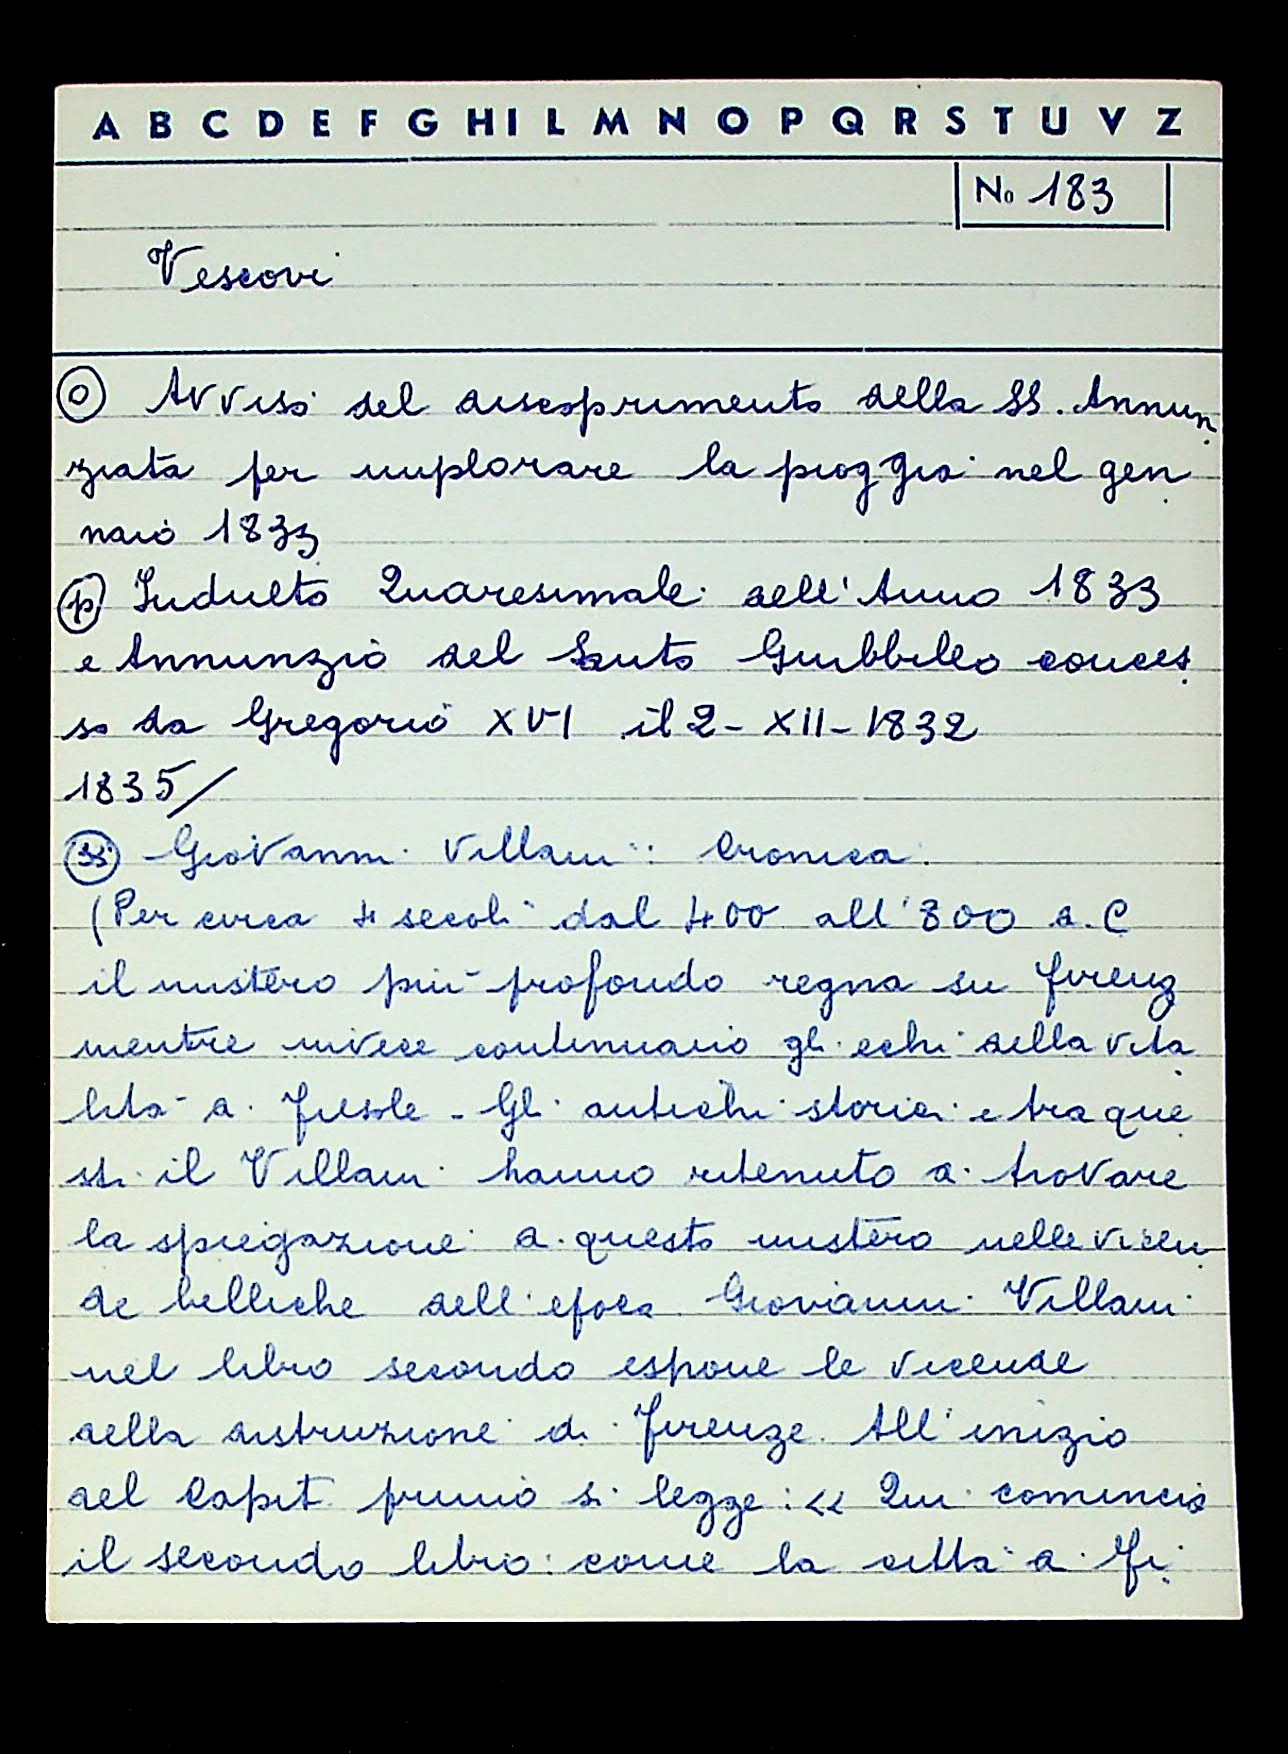 A B C D E F G H I L M N O P Q R S T U V Z
No 183
Vescovi
o Avviso del discoprimento della SS. Annun
ziata per implorare la pioggia nel gen
naio 1833
p Indulto Quaresimale dell'Anno 1833
e Annunzio del Santo Giubbileo conces
so da Gregorio XVI il 2-XII-1832
1835/
Giovanni Villani: Cronica.
(Per circa 4 secoli dal 400 all'800 d.C
il mistero più profondo regna su Firenz
mentre invece continuano gli echi della vita
lità di Fiesole - Gli antichi storici e tra que
sti il Villani hanno ritenuto di trovare
la spiegazione di questo mistero nelle vicen
de belliche dell'epoca Giovanni Villani
nel libro secondo espone le vicende
della distruzione di Firenze. All'inizio
del Capit primo si legge: << Qui comincia
il secondo libro: come la città di Fi